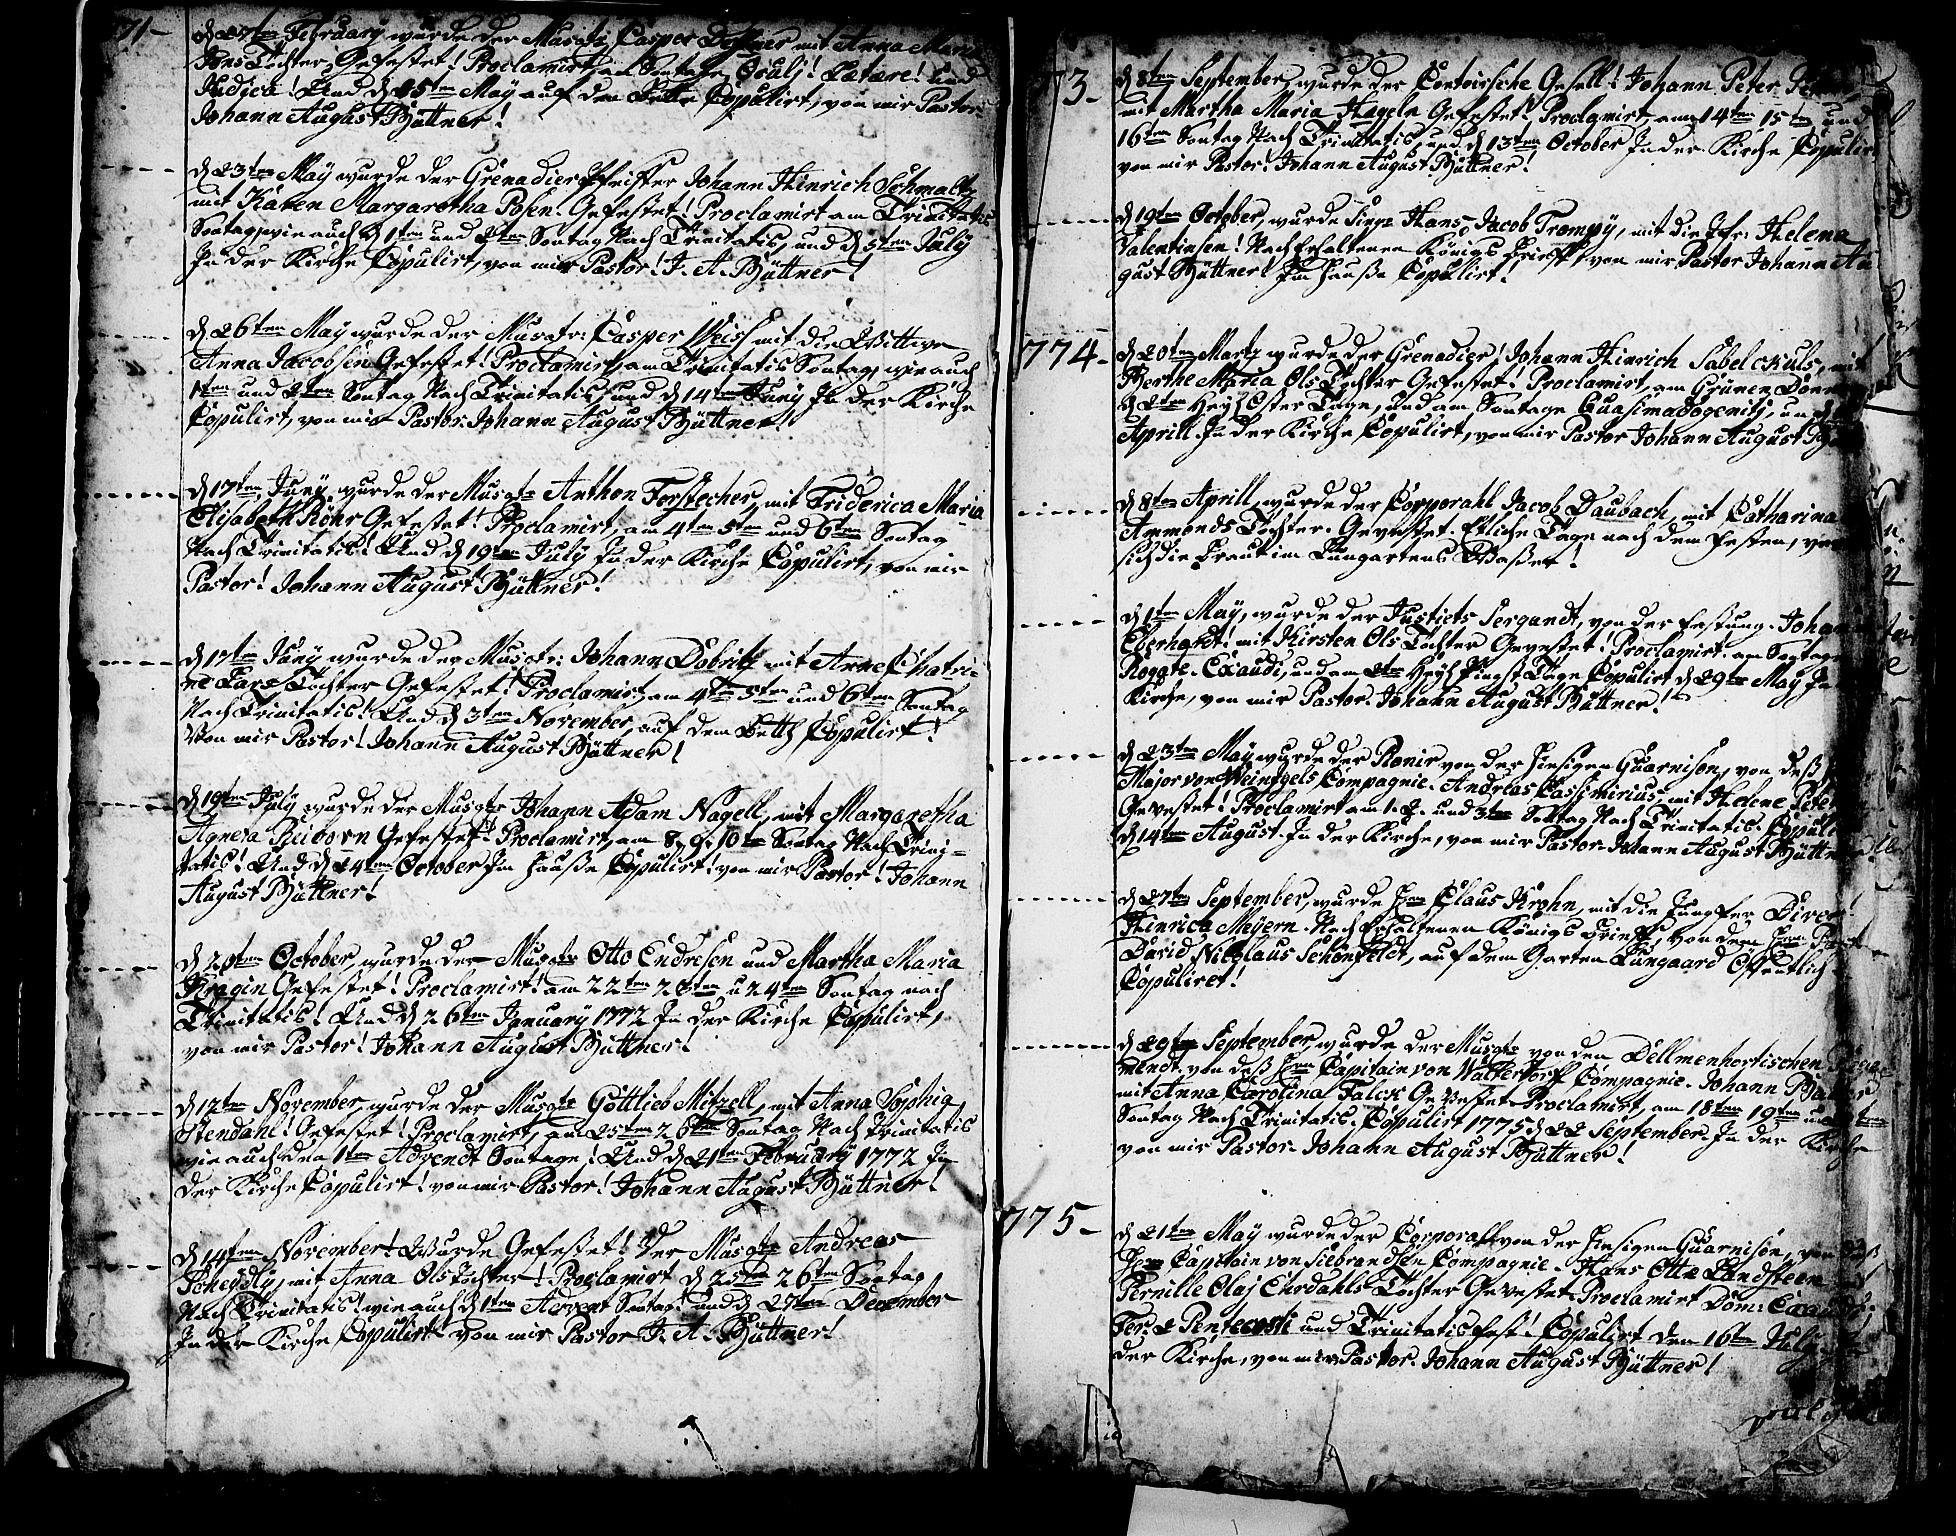 71-
d 27ten February wurde der Musqtr Casper Deßner mit Anna Maria
Jens Tochter, Gefestet! Proclamirt, am Sontage Oculj! Lætare! und
Judica! Und d 15ten May auf den Bette Copulirt, von mir Pastor
Johann August Büttner!
d 23ten May wurde der Grenadier Pfeiffer Johann Hinrich Schmaltz
mit Karen Margaretha Posen. Gefestet! Proclamirt am Trinitatis
Sontag, wie auch d 1ten und 2ten Sontag Nach Trinitatis, und d 5ten July
In der Kirche Copulirt, von mir Pastor! J. A. Büttner!
d 26ten May wurde der Musqtr: Casper Weiss mit die Wittwe
Anna Jacobsen Gefestet! Proclamirt, am Trinitatis Sontag, wie auch
1ten und 2ten Sontag Nach Trinitatis, und d 14ten Juny In der Kirche
Copulirt, von mir Pastor Johann August Büttner!
d 17ten Juny, wurde der Musqtr Anthon Forstecher, mit Friderica Maria
Elisabeth Röhr Gefestet! Proclamirt, am 4ten 5ten und 6ten Sontag
Nach Trinitatis! Und d 19ten July In der Kirche Copulirt, von mir
Pastor! Johann August Büttner!
d 17ten Juny wurde der Musqtr: Johann Döbritz mit Anne Chatri-
ne Lars Tochter Gefestet! Proclamirt, am 4ten 5ten und 6ten Sontag
Nach Trinitatis! Und d 3ten November, auf dem Bette Copulirt!
Von mir Pastor! Johann August Büttner!
d 19ten July wurde der Musqtr Johann Adam Nagell, mit Margaretha
Agneta Reiborn Gefestet! Proclamirt, am 8, 9. 10te Sontag Nach Trini-
tatis! Und d 24ten October Im Hauße Copulirt! von mir Pastor! Johann
August Büttner!
d 20ten October, wurde der Musqtr Otto Endresen und Martha Maria
Kragin Gefestet! Proclamirt! am 22ten 23ten u 24ten Sontag nach
Trinitatis! Und d 26ten January 1772 In der Kirche Copulirt,
von mir Pastor! Johann August Büttner!
d 12ten November, wurde der Musqtr Gottlieb Mitzell, mit Anna Sophia
Stendahl! Gefestet! Proclamirt, am 25ten 26ten Sontag Nach Trinitatis
wie auch den 1ten Advendt Sontage! Und d 21ten February 1772 In
der Kirche Copulirt! von mir Pastor! Johann August Büttner!
d 14ten November! Wurde Gefestet! Der Musqtr Andreas
Scheydly, mit Anna Ols Tochter! Proclamirt d 25ten 26ten Sontag
Nach Trinitatis! wie auch d 1ten Advent Sontag! und d 27ten December
In der Kirche Copulirt! von mir Pastor J. A. Büttner!
73-
d 8ten September, wurde der Contoirsche Gesell! Johann Peter
mit Martha Maria Hageln Gefestet! Proclamirt, am 14ten 15ten und
16ten Sontag Nach Trinitatis, und d 13ten October In der Kirche Copulir
von mir Pastor! Johann August Büttner!
d 19ten October, wurde Sigr Hans Jacob Trompy, mit die Jfr: Helena
Valentinsen! Nach Erhaltenen Königs Brieff, von mir Pastor Johann Au
gust Büttner! Im Hauße Copulirt!
774-
d 20ten Martz wurde der Grenadier! Johann Hinrich Sabelckuls, mit
Berthe Maria Ols Tochter Gefestet! Proclamirt, am Grünen Donner
d 2ten Heyl Oster Tage, und am Sontage Quasimodogenitj, und d
Aprill In der Kirche Copulirt, von mir Pastor Johann August
d 8ten Aprill, wurde der Corporahl Jacob Daubach, mit Catharina
Ammonds Tochter. Gevestet. Etliche Tage nach dem Festen,
sich die Braut im Lungartens Waßer!
d 1ten May, wurde der Justiets Sergandt, von der Festung. Johann
Eberhardt! mit Kirsten Ols Tochter Gevestet! Proclamirt. am Sontage
Rogate. Exaudi, und am 2ten Heyl Pingst Tage Copulirt d 29ten May In
Kirche, von mir Pastor. Johann August Büttner!
d 23ten May wurde der Pionir von der Hiesigen Guarnison, von deß
Major von Weinigels Compagnie. Andreas Cassimirius, mit Helene Peter
Gevestet! Proclamirt am 1. 2. und 3ten Sontag Nach Trinitatis. Copuli
d 14ten August. In der Kirche, von mir Pastor Johann August Büttner
d 27ten September, wurde Hrn Claus Krohn, mit die Jungfer Divert
Hinrica Meyern. Nach Erhaltenen Königs Brieff, von dem Hrn Past
David Nicolaus Schönfeldt, auf dem Garten Lungaard Offentlich
Copuliret!
d 29ten September wurde der Musqtr von den Dellmenhorstischen
mendt von deß Hrn Capitain von Walterdorff Compagnie. Johann
mit Anna Carolina Falck Gevestet. Proclamirt, am 18ten 19ten und
Sontag Nach Trinitatis. Copulirt 1775 d 22 September. In der Kirche
von mir Pastor. Johann August Büttner!
775-
d 21ten May wurde der Corporall von der Hiesigen Guarnison, von deß
Hrn Capitain von Siebrandsen Compagnie. Hans Otto Landsteen
Pernille Olaj Ehrdahls Tochter Gevestet. Proclamirt Dom: Exaudi.
Fer: 2 Pentecosti und Trinitatis Fest! Copulirt den 16ten July. In
der Kirche, von mir Pastor. Johann August Büttner!